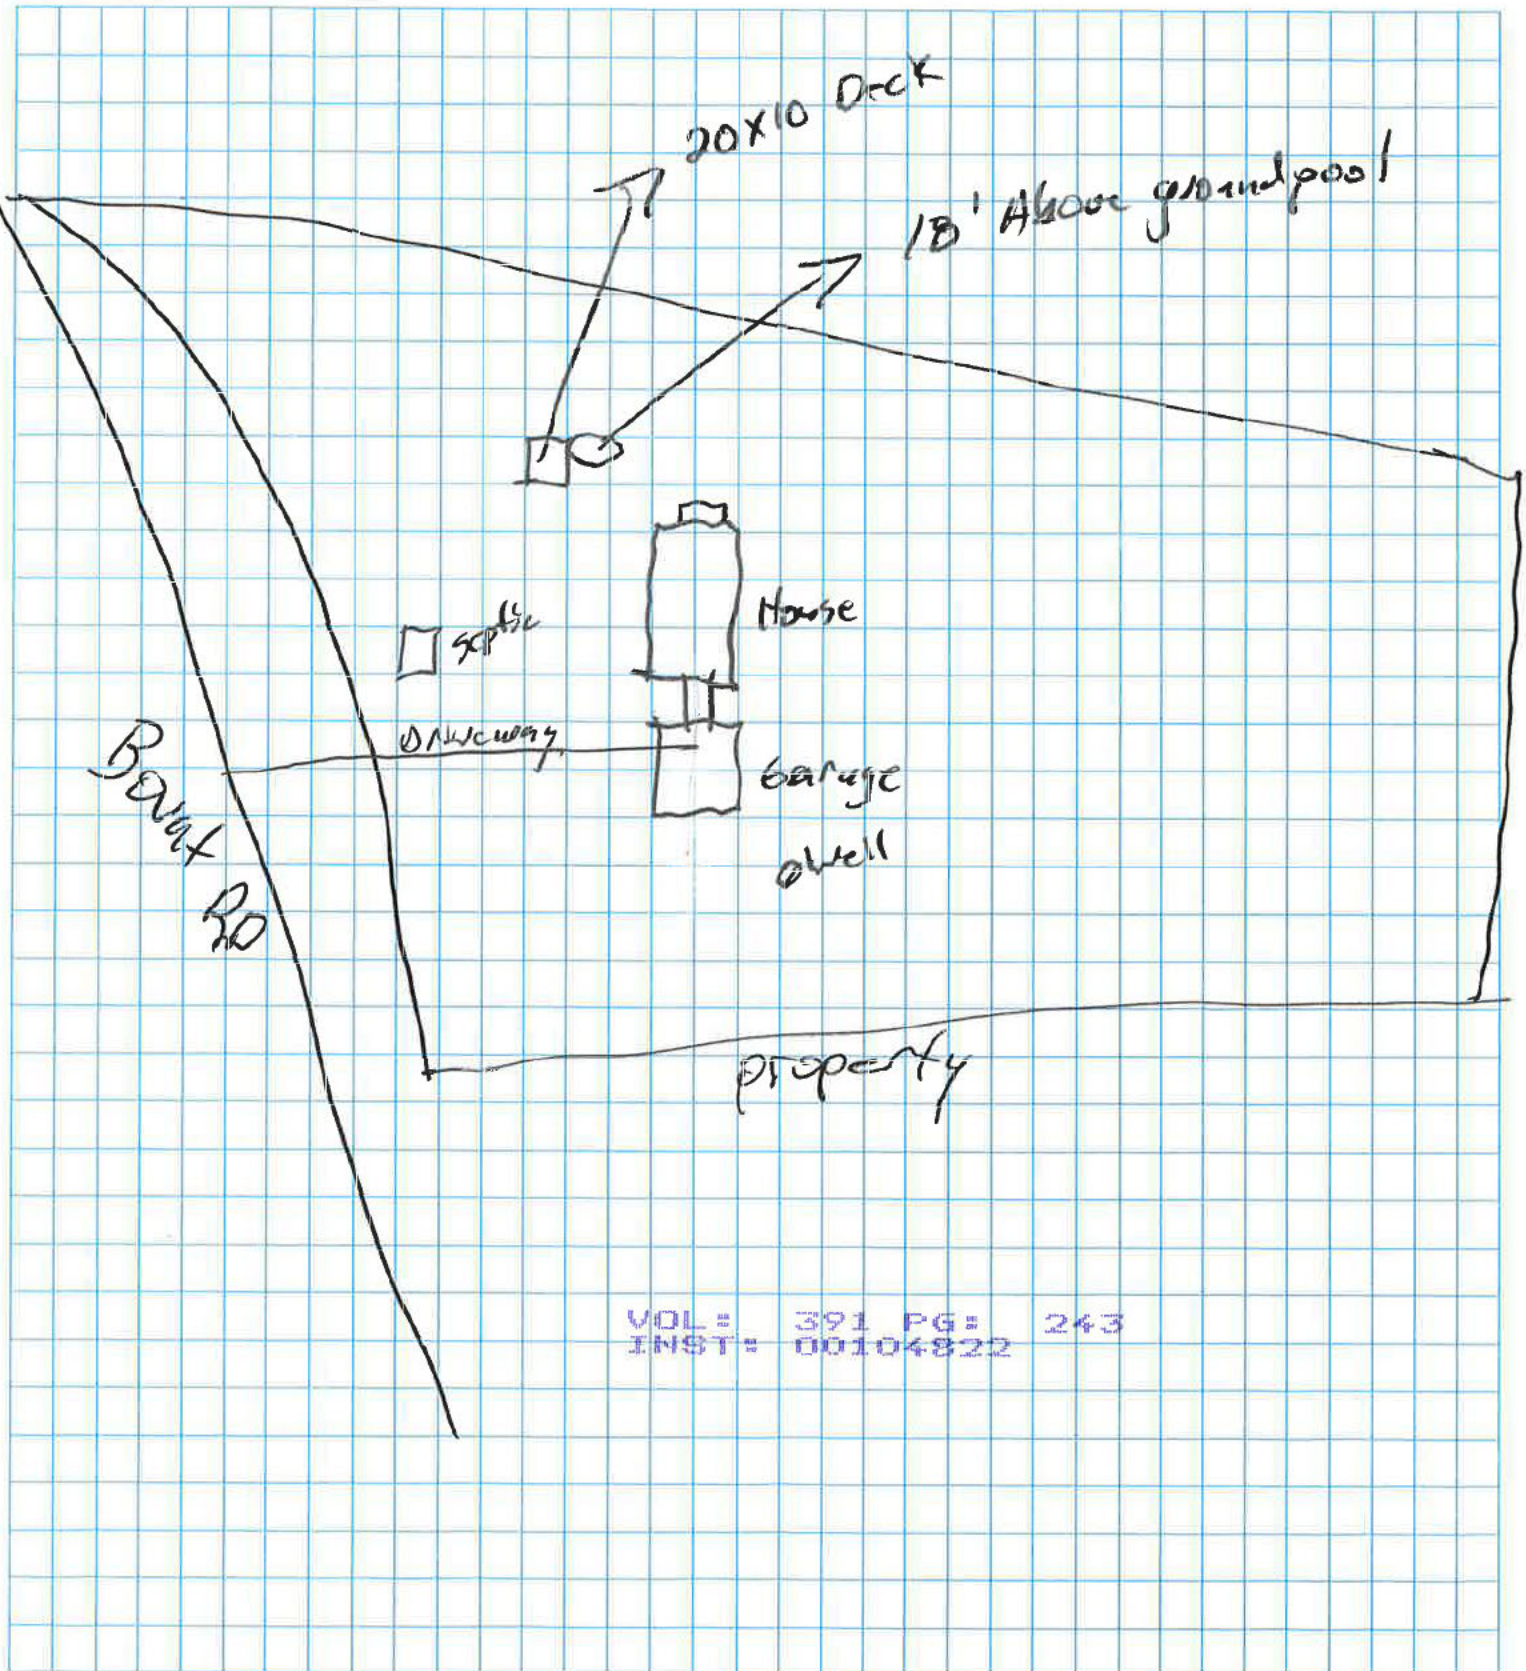 20X10 Deck
18' Above ground pool
House
septic
Driveway
Garage
Bovat
RD
well
property
VOL: 391 PG: 243
INST: 00104822